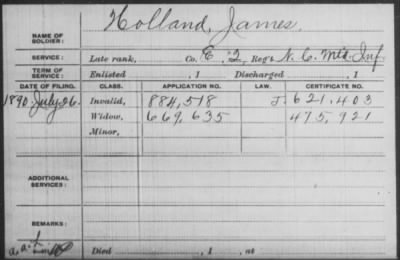 Holland, James.
NAME OF SOLDIER:
SERVICE: Late rank, Co. E, 2, Reg't N. C. Mt'd. Inf.
TERM OF SERVICE: Enlisted , 1 Discharged , 1
DATE OF FILING. CLASS. APPLICATION NO. LAW. CERTIFICATE NO.
1890. July 26. Invalid, 884,518 J. 621.403
Widow, 669,635 475,921
Minor,
ADDITIONAL SERVICES:
REMARKS:
Died , 1 , at